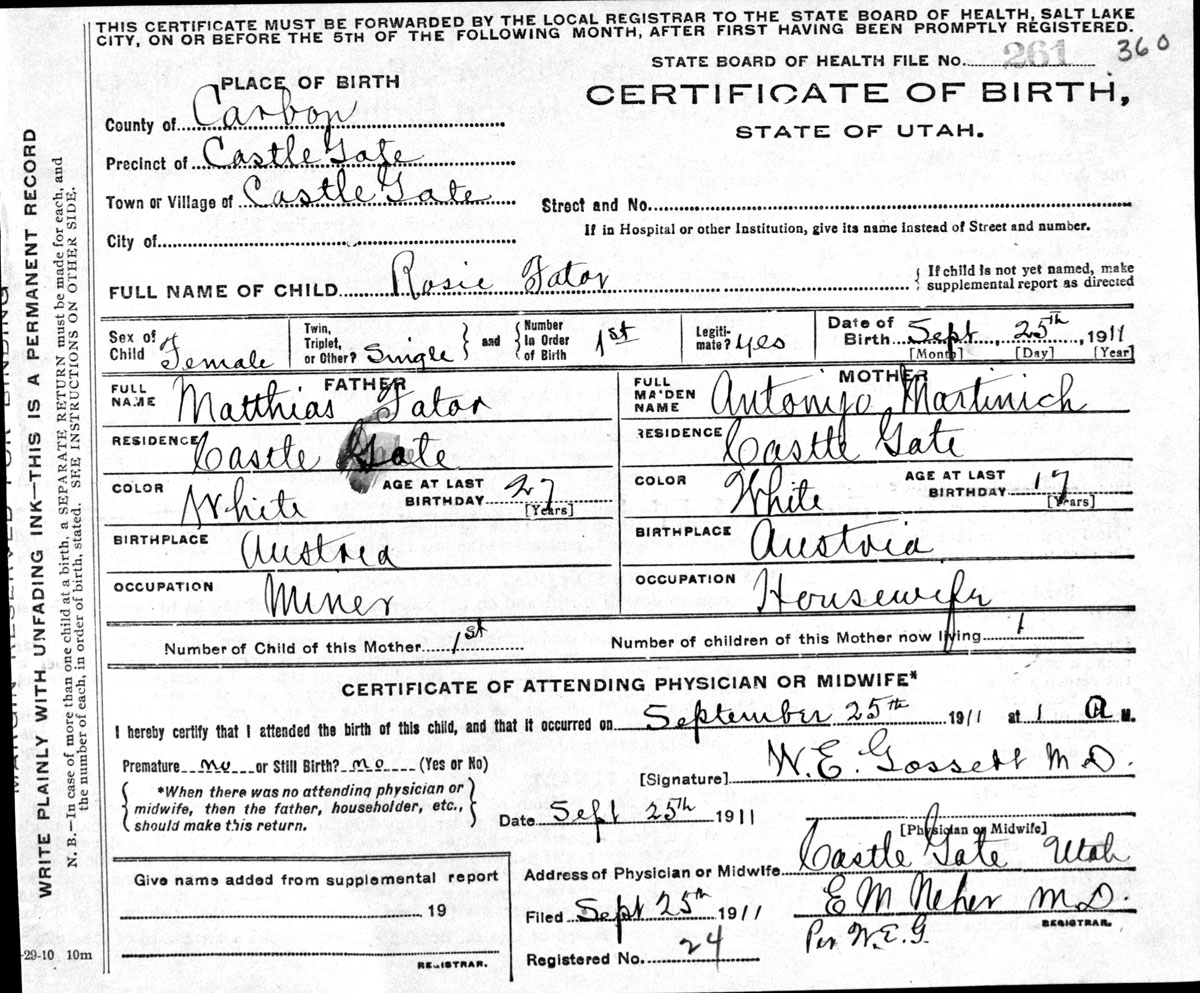 THIS CERTIFICATE MUST BE FORWARDED BY THE LOCAL REGISTRAR TO THE STATE BOARD OF HEALTH, SALT LAKE
CITY, ON OR BEFORE THE 5TH OF THE FOLLOWING MONTH, AFTER FIRST HAVING BEEN PROMPTLY REGISTERED.
STATE BOARD OF HEALTH FILE No. 261 360
PLACE OF BIRTH
CERTIFICATE OF BIRTH,
STATE OF UTAH.
County of Carbon
Precinct of Castle Gate
Town or Village of Castle Gate
Street and No.
City of
If in Hospital or other Institution, give its name instead of Street and number.
FULL NAME OF CHILD Rosie Fator
If child is not yet named, make
supplemental report as directed
Sex of Child Female
Twin, Triplet, or Other? Single and Number In Order of Birth 1st
Legitimate? Yes
Date of Birth Sept 25th, 1911
[Month] [Day] [Year]
FATHER
FULL NAME Matthias Fator
RESIDENCE Castle Gate
COLOR White
AGE AT LAST BIRTHDAY 27
[Years]
BIRTHPLACE Austria
OCCUPATION Miner
MOTHER
FULL MAIDEN NAME Antonijo Martinich
RESIDENCE Castle Gate
COLOR White
AGE AT LAST BIRTHDAY 17
[Years]
BIRTHPLACE Austria
OCCUPATION Housewife
Number of Child of this Mother 1st
Number of children of this Mother now living 1
CERTIFICATE OF ATTENDING PHYSICIAN OR MIDWIFE*
I hereby certify that I attended the birth of this child, and that it occurred on September 25th 1911 at 1 A M.
Premature no or Still Birth? no (Yes or No)
[Signature] W. E. Gossett M.D.
*When there was no attending physician or
midwife, then the father, householder, etc.,
should make this return.
Date Sept 25th 1911
[Physician or Midwife]
Address of Physician or Midwife Castle Gate Utah
Give name added from supplemental report
19
REGISTRAR.
Filed Sept 25th 1911
E M Neher M.D.
REGISTRAR.
Per W.E.G.
Registered No. 24
-29-10 10m
MARGIN RESERVED FOR BINDING
WRITE PLAINLY WITH UNFADING INK—THIS IS A PERMANENT RECORD
N. B.—In case of more than one child at a birth, a SEPARATE RETURN must be made for each, and
the number of each, in order of birth, stated. SEE INSTRUCTIONS ON OTHER SIDE.